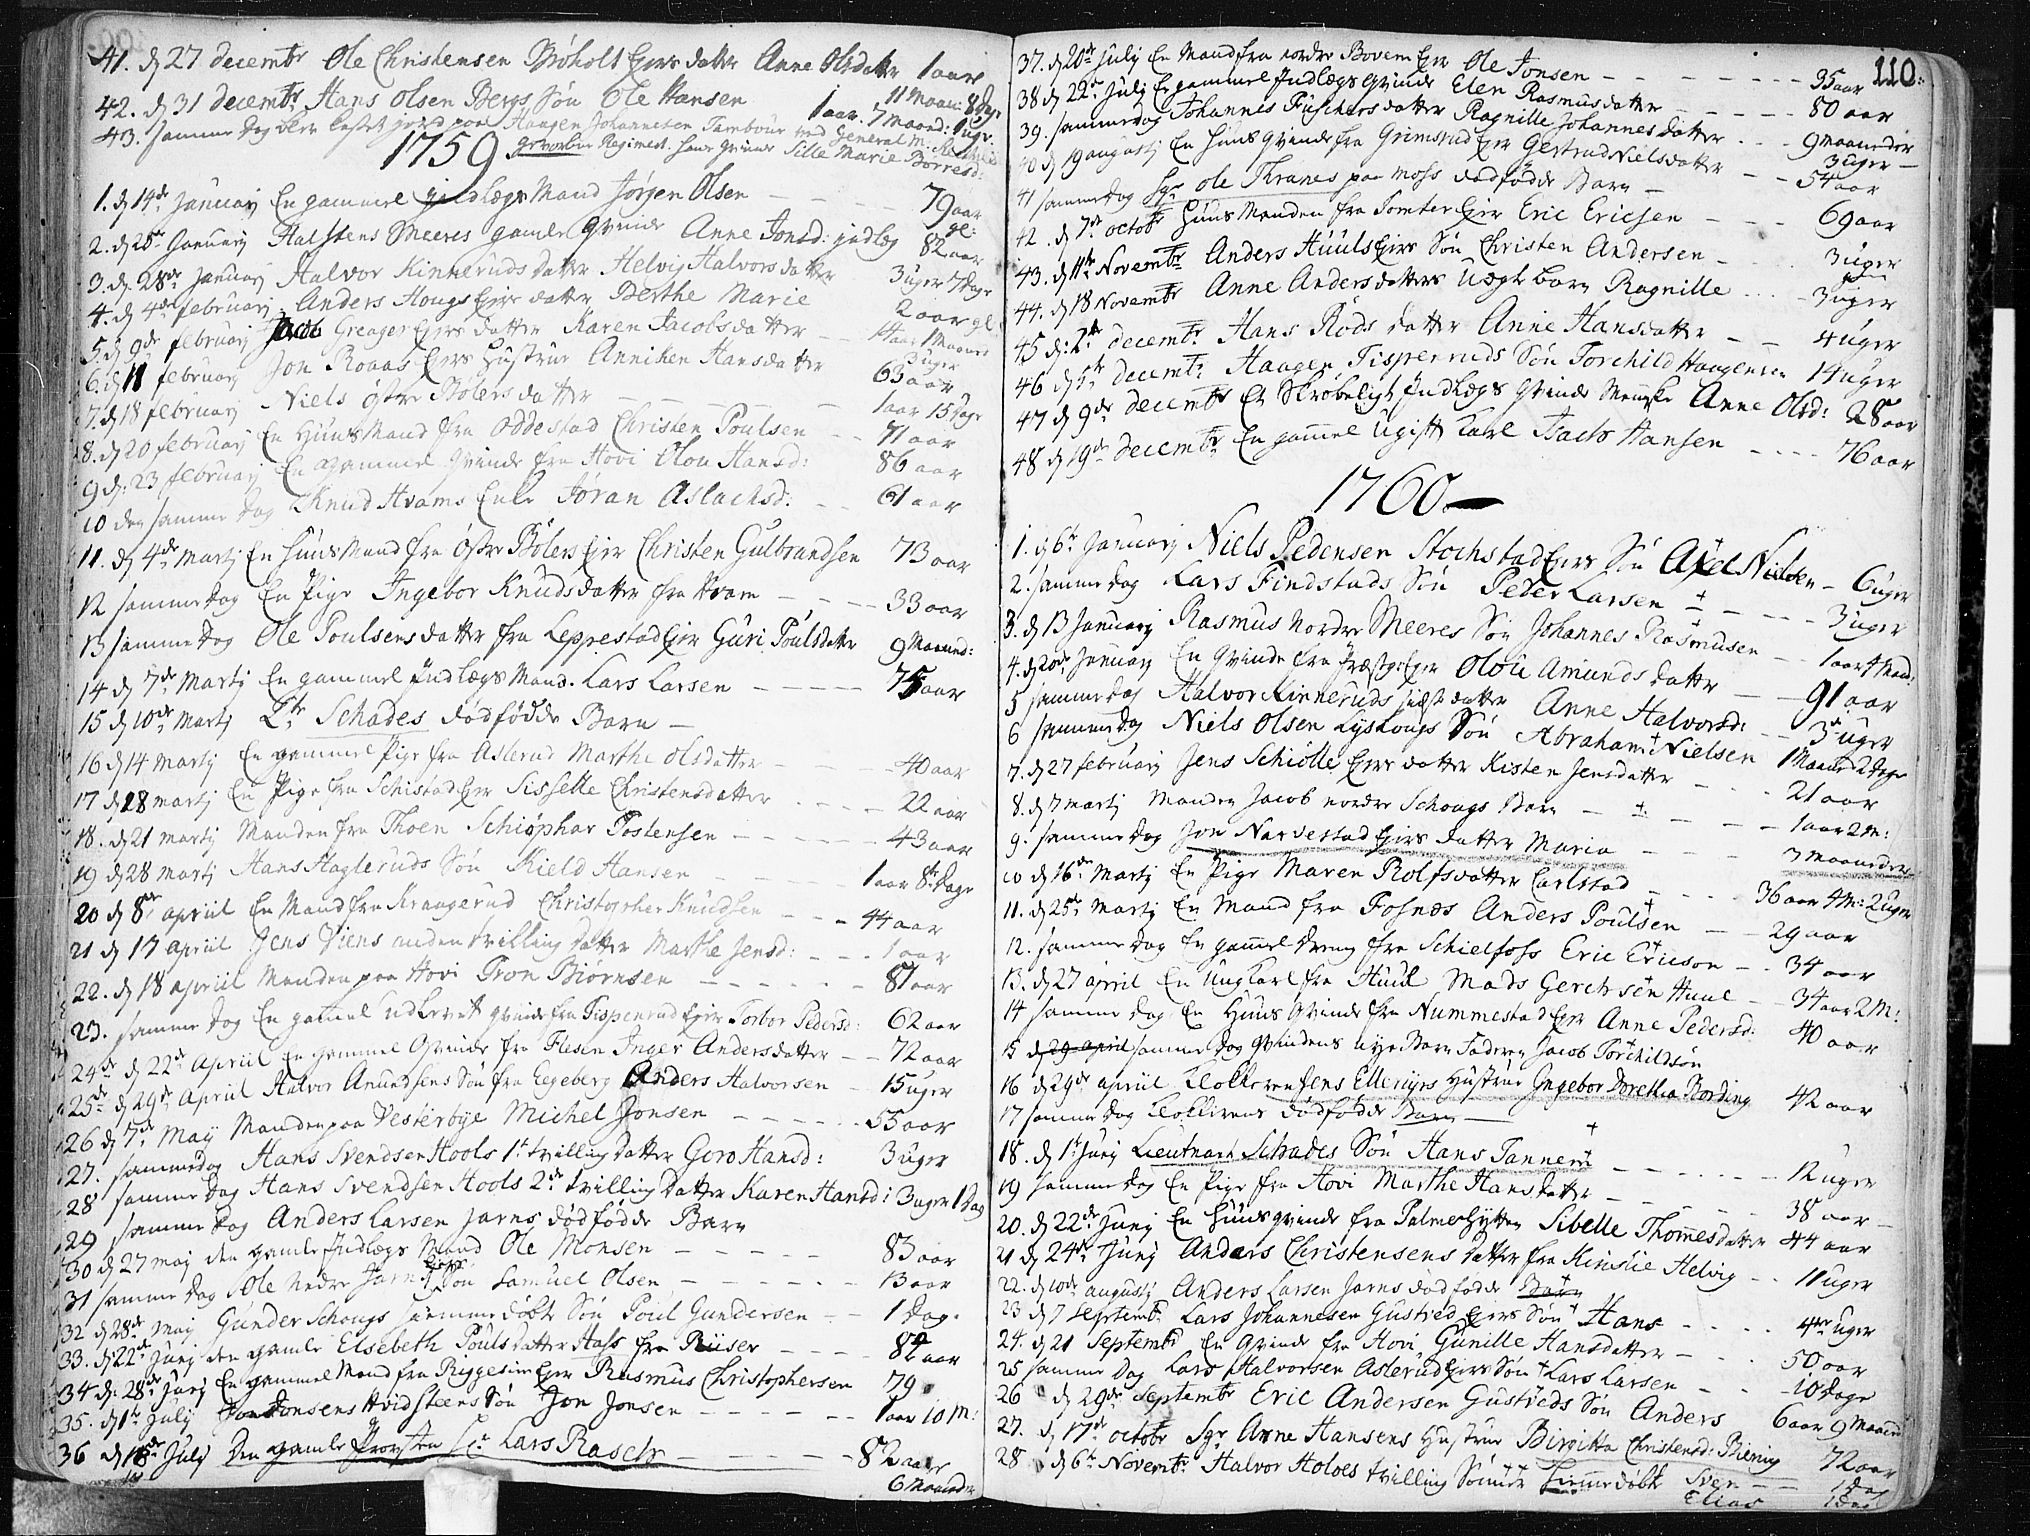 41. d 27 decembr Ole Christensen Brøholt Ejers datter Anne Olsdatter 1 aar
11 Maan: 8 dag:
42. d 31 decembr Hans Olsen Bergs Søn Ole Hansen 1 aar. 7 Maand: 1 uge.
43. samme dag blev kastet jord paa Haagen Johannesen Tambour ved General M:
Regiment. hans Qvinde Sille Marie Børresd:
1759
1. d 14de January En gammel jndlægs Mand Jørgen Olsen 79 aar
2. d 25de January Halstens Meeres gamle Qvinde Anne Jonsd: jndlæg 82 aar
3. d. 28de January Halvor Kinneruds datter Helvig Halvors datter 3 uger 7 dage
4. d 4de february Anders Hougs Ejers datter Berthe Marie 2 aar gl:
5. d 9de february Greager Ejers datter Karen Jacobsdatter 14 aar 1 Maaned
3 uger
6. d 11 february Jon Roaas Ejers Hustrue Anniken Hansdatter 63 aar
7. d 18 february Niels østre Bølers datter 1 aar 15 dage
8. d 20 february En Huus Mand fra Oddestad Christen Poulsen 71 aar
9 d: 23 february En gammel Qvinde fra Hovi Olou Hansd: 86 aar
10 den samme dag Knud Hvams Enke Jøran Aslachsd: 61 aar
11. d 4de Martj En huus Mand fra østre Bølers Ejer Christen Gulbrandsen 73 aar
12 samme dag En Pige Ingebor Knudsdatter fra Hvam 33 aar
13 samme dag Ole Poulsens datter fra Leppestad Ejer Guri Poulsdatter 9 Maaned:
14 d 7de Martj En gammel Jndlægs Mand. Lars Larsen 75 aar
15 d 10de Martj Ltn Schades dødfødde Barn
16 d 14 Martj En gammel Pige fra Aslerud Marthe Olsdatter 40 aar
17 d 18 martj En Pige fra Schistad Ejer Sisselle Christensdatter 22 aar
18. d 21 martj Manden fra Thoen Schiøphar Tostensen 43 aar
19 d 28 martj Hans Hagleruds Søn Kield Hansen 1 aar 8te dage
20 d 8de apriil En Mand fra Kraagerud Christopher Knudsen 44 aar
21 d 17 apriil Jens Viens anden tvilling datter Marthe Jensd: 1 aar
22. d 18 apriil Manden paa Hovi Tron Biørnsen 81 aar
23. samme dag En gamel udlevet qvinde fra Tispenrud Ejer Torbor Pedersd: 62 aar
24de d 22de Apriil En gammel Qvinde fra Flesen Inger Andersdatter 72 aar
25de d 29de Apriil Halvor Amundsens Søn fra Egeberg Anders Halvorsen 15 uger
26 d 7de May Manden paa Vesterbye Michel Jonsen 55 aar
27. sammedag Hans Svendsen Hools 1te tvilling datter Goro Hansd: 3 uger
28 samme dag Hans Svendsen Hools 2de tvilling datter Karen Hansd: 3 uger 1 dag
29 samme dag Anders Larsen Jarns dødfødde Barn
30 d 27 maj den gamle Jndlægs Mand Ole Monsen 83 aar
31 samme dag Ole Nedre Jarns Søn Samuel Olsen 13 aar
32 d 28de maj Gunder Schougs hiemmedøbt Søn Poul Gundersen 1 Dag.
33. d 22de Junj den gamle Elsebeth Poulsdatter Hass fra Riiser 82 aar
34 d: 28de Junj En gammel Mand fra Ryggesim Ejer Rasmus Christophersen 79
35. d 1te Julij Jon Jonsens Hvidsteens Søn Jon Jonsen 1 aar 10 M:
36 d 18de Julij Den gamle Provsten Sr Lars Rasch 82 aar
6 Maaneder
110:
37. d 20de Julij En Mand fra nordre Bovem Ejer Ole Jonsen 35 aar
38 d 22de Julij En gammel Jndlægs Qvinde Elen Rasmusdatter 80 aar
39. sammedag Johannes Fuschers datter Ragnille Johannes datter 9 Maaneder
3 uger
40 d 19 augustj En Huus Qvinde fra Grimsrud Ejer Gertrud Nielsdatter 54 aar
41 sammedag Sgr Ole Thranes paa Moss dødfødde Barn
42. d 7de octobr Huus Manden fra Tomter Ejer Eric Ericsen 69 aar
43. d 11te Novembr Anders Huuls Ejers Søn Christen Andersen 3 uger
44. d 18 Novembr Anne Andersdatters Uægte barn Ragnille 3 uger
45 d: 2de decembr Hans Røds datter Anne Hansdatter 4 uger
46 d 5te decembr Haagen Tispenruds Søn Torchild Haagensen 14 uger
47 d 9de decembr Et Skrøbeligt Jndlægs Qvinde Menniske Anne Olsd: 28 aar
48 d 19de decembr En gammel Ugift Karl Jacob Hansen 76 aar
1760
1. d 6te January Niels Pedersen Stochstad Ejers Søn Axel Nielsen 6 uger
2. samme dag Lars Findstads Søn Peder Larsen 3 uger
3. d 13 January Rasmus Nordre Meeres Søn Johannes Rasmusen 1 aar 4 Maa:
4. d 20de January En Qvinde fra Præstge Ejer Olou Amunds datter 91 aar
5 sammedag Halvor Kinneruds sidste datter Anne Halvorsd: 3 uger
6 sammedag Niels Olsen Lyskougs Søn Abraham Nielsen 1 Maaned 2 dage
7. d 27 february Jens Schiølle Ejers datter Kisten Jensdatter 21 aar
8. d 7 martj Manden Jacob nordre Schougs Barn 1 aar 2 M:
9. samme dag Jon Narvestad Ejers datter Maria 3 maaneder
10 d 16de Martj En Pige Maren Rolfsdatter Carlstad 36 aar 4 M: 2 uger
11. d 25de Martj En Mand fra Fosnæs Anders Poulsen 29 aar
12. samme dag En gammel dreng fra Schielfoss Eric Ericson 34 aar
13. d 27 april En Ung Karl fra Huul Mads Gerchsen Huul 34 aar 2 M:
14 samme dag En Huus Qvinde fra Nummestad Ejer Anne Pedersd: 40 aar
15 d 29 april samme dag Qvindens nye Barn Faderen Jacob Torchildsøn
16 d 29de apriil Klokkeren Jens Ellengers Hustrue Ingebor Dorethea Nording 42 aar
17 samme dag Klokkerens dødfødde Barn
18. d 1te Junj Lieutnant Schades Søn Hans Tanner 12 uger
19 samme dag En Pige fra Hovi Marthe Hansdatter 38 aar
20. d 22de Junj En huus qvinde fra Palmerhytten Sibelle Thommesdatter 44 aar
21 d 24de Junj Anders Christensens datter fra Kinslie Helvig 11 uger
22. d 10de augustj Anders Larsen Jarns dødfødde Barn
23 d 7 septembr Lars Johannesen Gustved Ejers Søn Hans 4 uger
24. d 21 Septembr En Qvinde fra Hovi Gunille Hansdatter 50 aar
25 samme dag Lars Halvorsen Aslerud Ejers Søn Lars Larsen 10 dage
26 d 29de Septembr Eric Andersen Gustveds Søn Anders 6 aar 9 Maaned
27. d 17de octobr Sgr Arne Hansens Hustrue Birgitta Christensd: Biering 72 aar
28 d 6te Novembr Halvor Holøes tvilling Sønner hiemmedøbt Sven 1 dag
Elias 1 dag